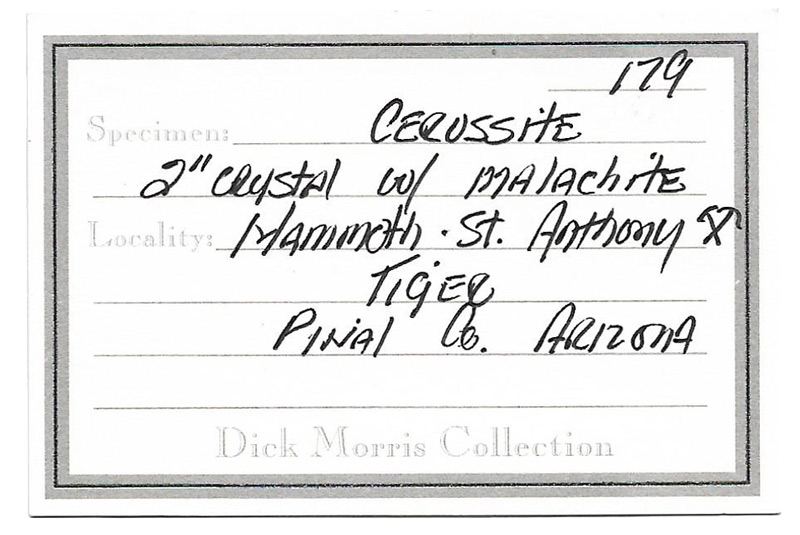 179
Specimen: Cerussite
2" crystal w/ malachite
Locality: Mammoth - St. Anthony ⚒
Tiger
Pinal Co. Arizona
Dick Morris Collection